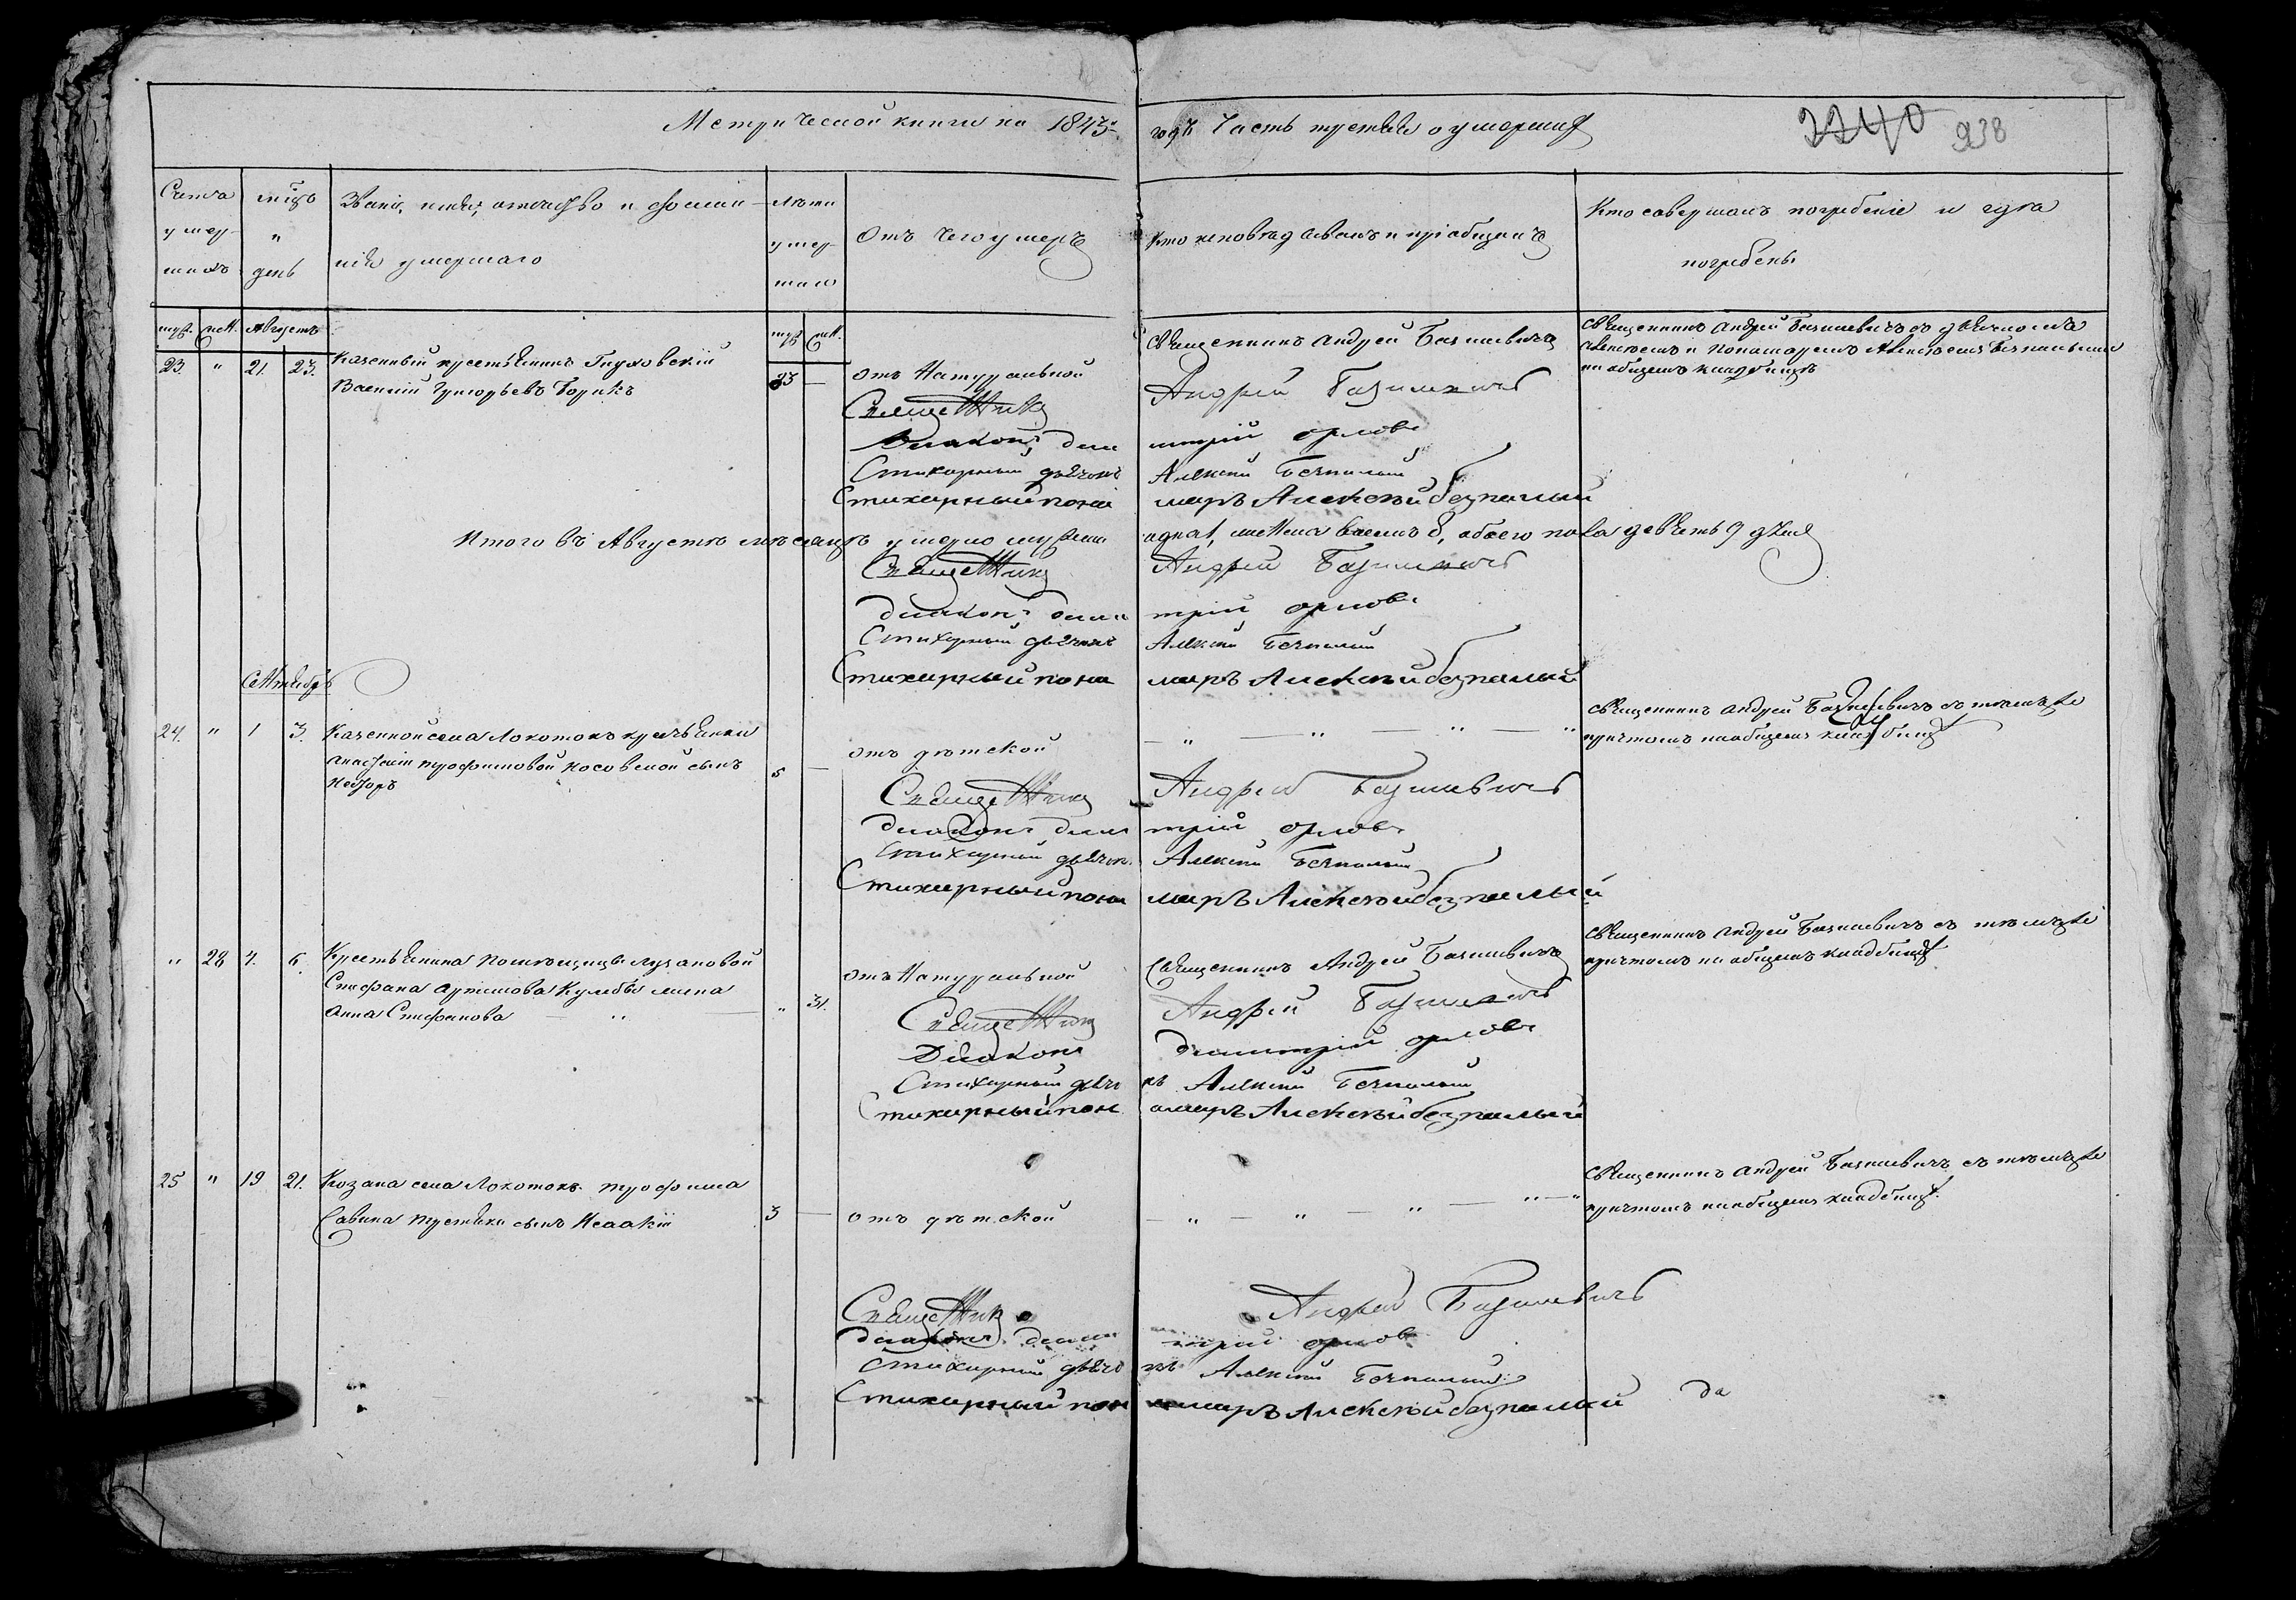 Метрической книги на 1843й годъ Часть третья о умершихъ
2240 938
Счетъ умершихъ
мѣсяцъ и день
Званіе, имя, отечество и фамилія умершаго
лѣта умершаго
Отъ чего умеръ
Кто исповѣдывалъ и пріобщалъ
Кто совершалъ погребеніе и гдѣ погребены
муж. жен. Августъ
муж. жен.
23. " 21. 23. Казенный крестьянинъ Глуховскій
Василій Григорьевъ Борикъ
23 — отъ Натуральной
Священникъ Андрей Базилевичъ
Священникъ Андрей Базилевичъ съ дьячкомъ
Алексѣемъ и Пономаремъ Алексѣемъ Безпалыми
на общемъ кладбищѣ
Священникъ Андрей Базилевичъ
Діаконъ Димитрій Орловъ
Стихарный дьячокъ Алексій Безпалый
Стихарный пономаръ Алексѣй Безпалый
Итого въ Августѣ мѣсяцѣ умерло мужеска одна 1, женска восемъ 8, обоего пола девять 9 душъ
Священникъ Андрей Базилевичъ
Діаконъ Димитрій Орловъ
Стихарный дьячокъ Алексій Безпалый
Стихарный пономаръ Алексѣй Безпалый
Сентябрь
24. " 1 3. Казенной села Локотокъ крестьянки
Анастасіи Трофимовой Косовской сынъ
Несторъ
5 — отъ дѣтской
— " — " — " — "
Священникъ Андрей Базилевичъ съ тѣмъже
причтомъ на общемъ кладбищѣ
Священникъ Андрей Базилевичъ
Діаконъ Димитрій Орловъ
Стихарный дьячокъ Алексій Безпалый
Стихарный пономаръ Алексѣй Безпалый
" 28 4. 6. Крестьянина помѣщицы
Стефана Артемова Кулебы жена
Анна Стефанова — " —
" 31. отъ Натуральной
Священникъ Андрей Базилевичъ
Священникъ Андрей Базилевичъ съ тѣмъже
причтомъ на общемъ кладбищѣ
Священникъ Андрей Базилевичъ
Діаконъ Димитрій Орловъ
Стихарный дьячокъ Алексій Безпалый
Стихарный пономаръ Алексѣй Безпалый
25 " 19 21. Козака села Локотокъ Трофима
Савина сынъ Исаакій
3 — отъ дѣтской
— " — " — " — " — "
Священникъ Андрей Базилевичъ съ тѣмъже
причтомъ на общемъ кладбищѣ.
Священникъ Андрей Базилевичъ
Діаконъ Димитрій Орловъ
Стихарный дьячокъ Алексій Безпалый
Стихарный пономаръ Алексѣй Безпалый
да